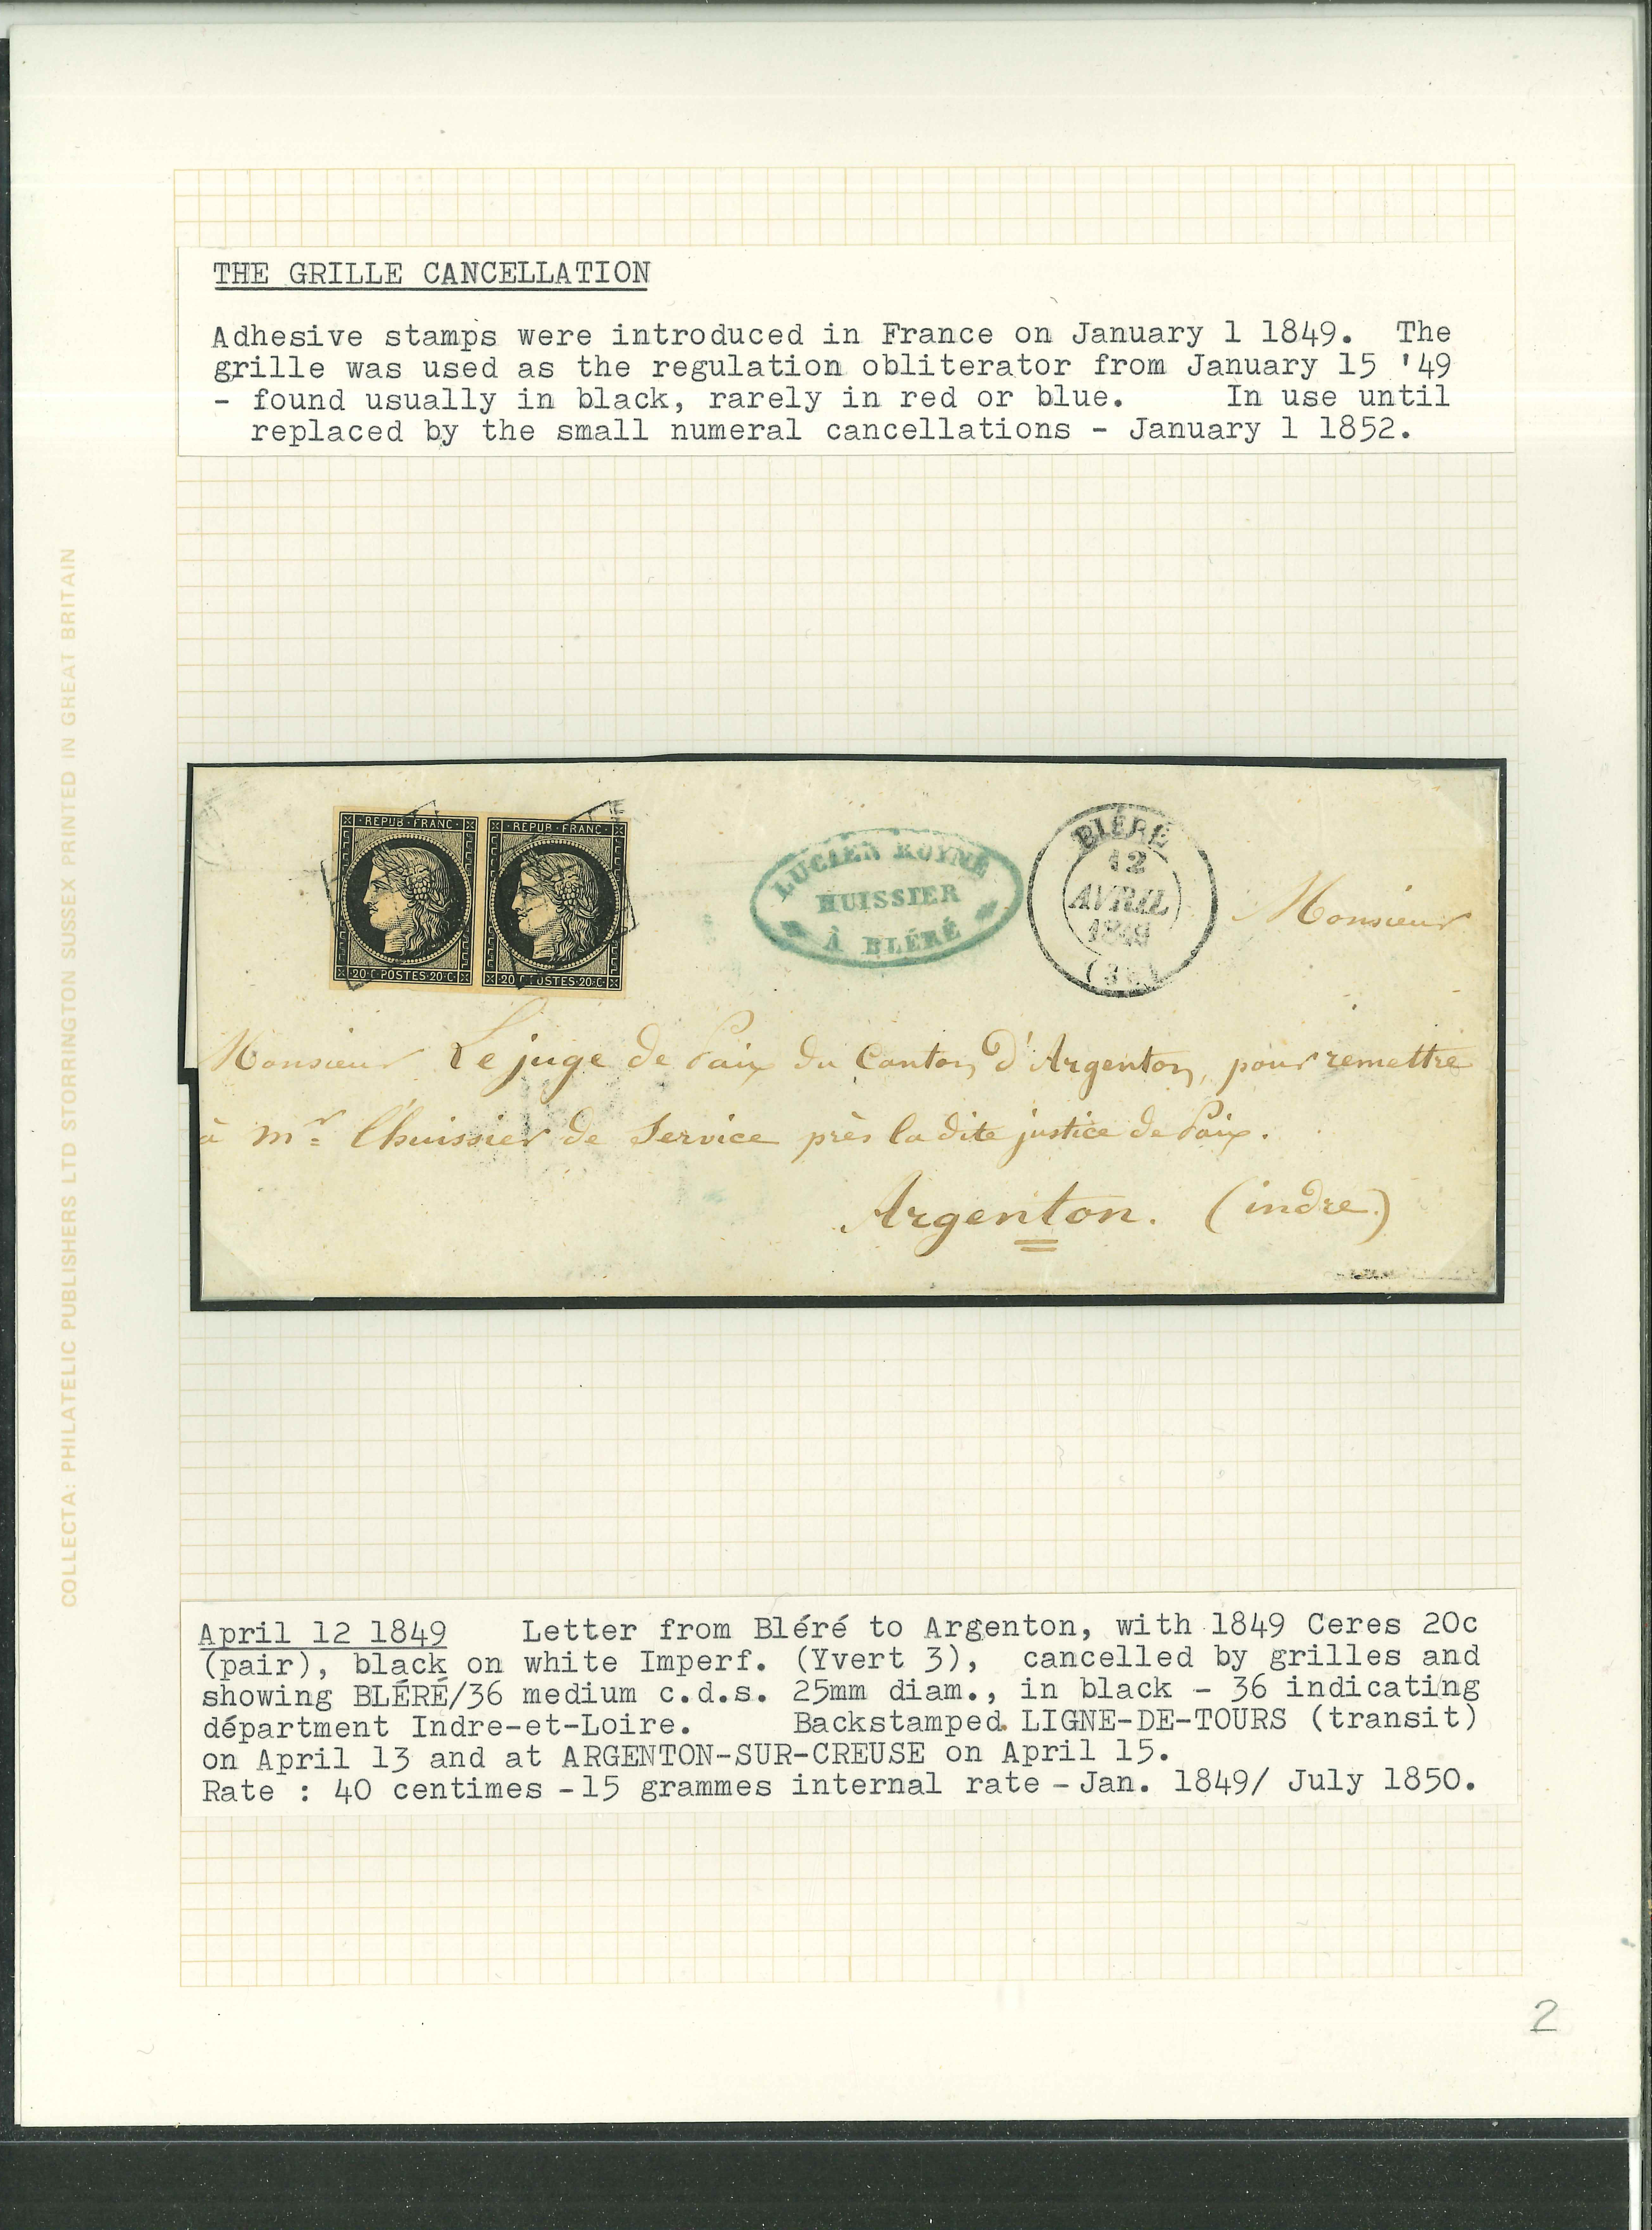 THE GRILLE CANCELLATION
Adhesive stamps were introduced in France on January 1 1849. The
grille was used as the regulation obliterator from January 15 '49
- found usually in black, rarely in red or blue. In use until
replaced by the small numeral cancellations - January 1 1852.
COLLECTA: PHILATELIC PUBLISHERS LTD STORRINGTON SUSSEX PRINTED IN GREAT BRITAIN
REPUB·FRANC·
20·C·POSTES·20·C·
REPUB·FRANC·
20·C·POSTES·20·C·
LUCIEN
HUISSIER
À BLÉRÉ
BLÉRÉ
12
AVRIL
1849
Monsieur
Monsieur Le juge de Paix du Canton d'Argenton, pour remettre
à mr l'huissier de Service près la dite justice de Paix.
Argenton. (indre.)
April 12 1849 Letter from Bléré to Argenton, with 1849 Ceres 20c
(pair), black on white Imperf. (Yvert 3), cancelled by grilles and
showing BLÉRÉ/36 medium c.d.s. 25mm diam., in black - 36 indicating
départment Indre-et-Loire. Backstamped LIGNE-DE-TOURS (transit)
on April 13 and at ARGENTON-SUR-CREUSE on April 15.
Rate : 40 centimes - 15 grammes internal rate - Jan. 1849/ July 1850.
2